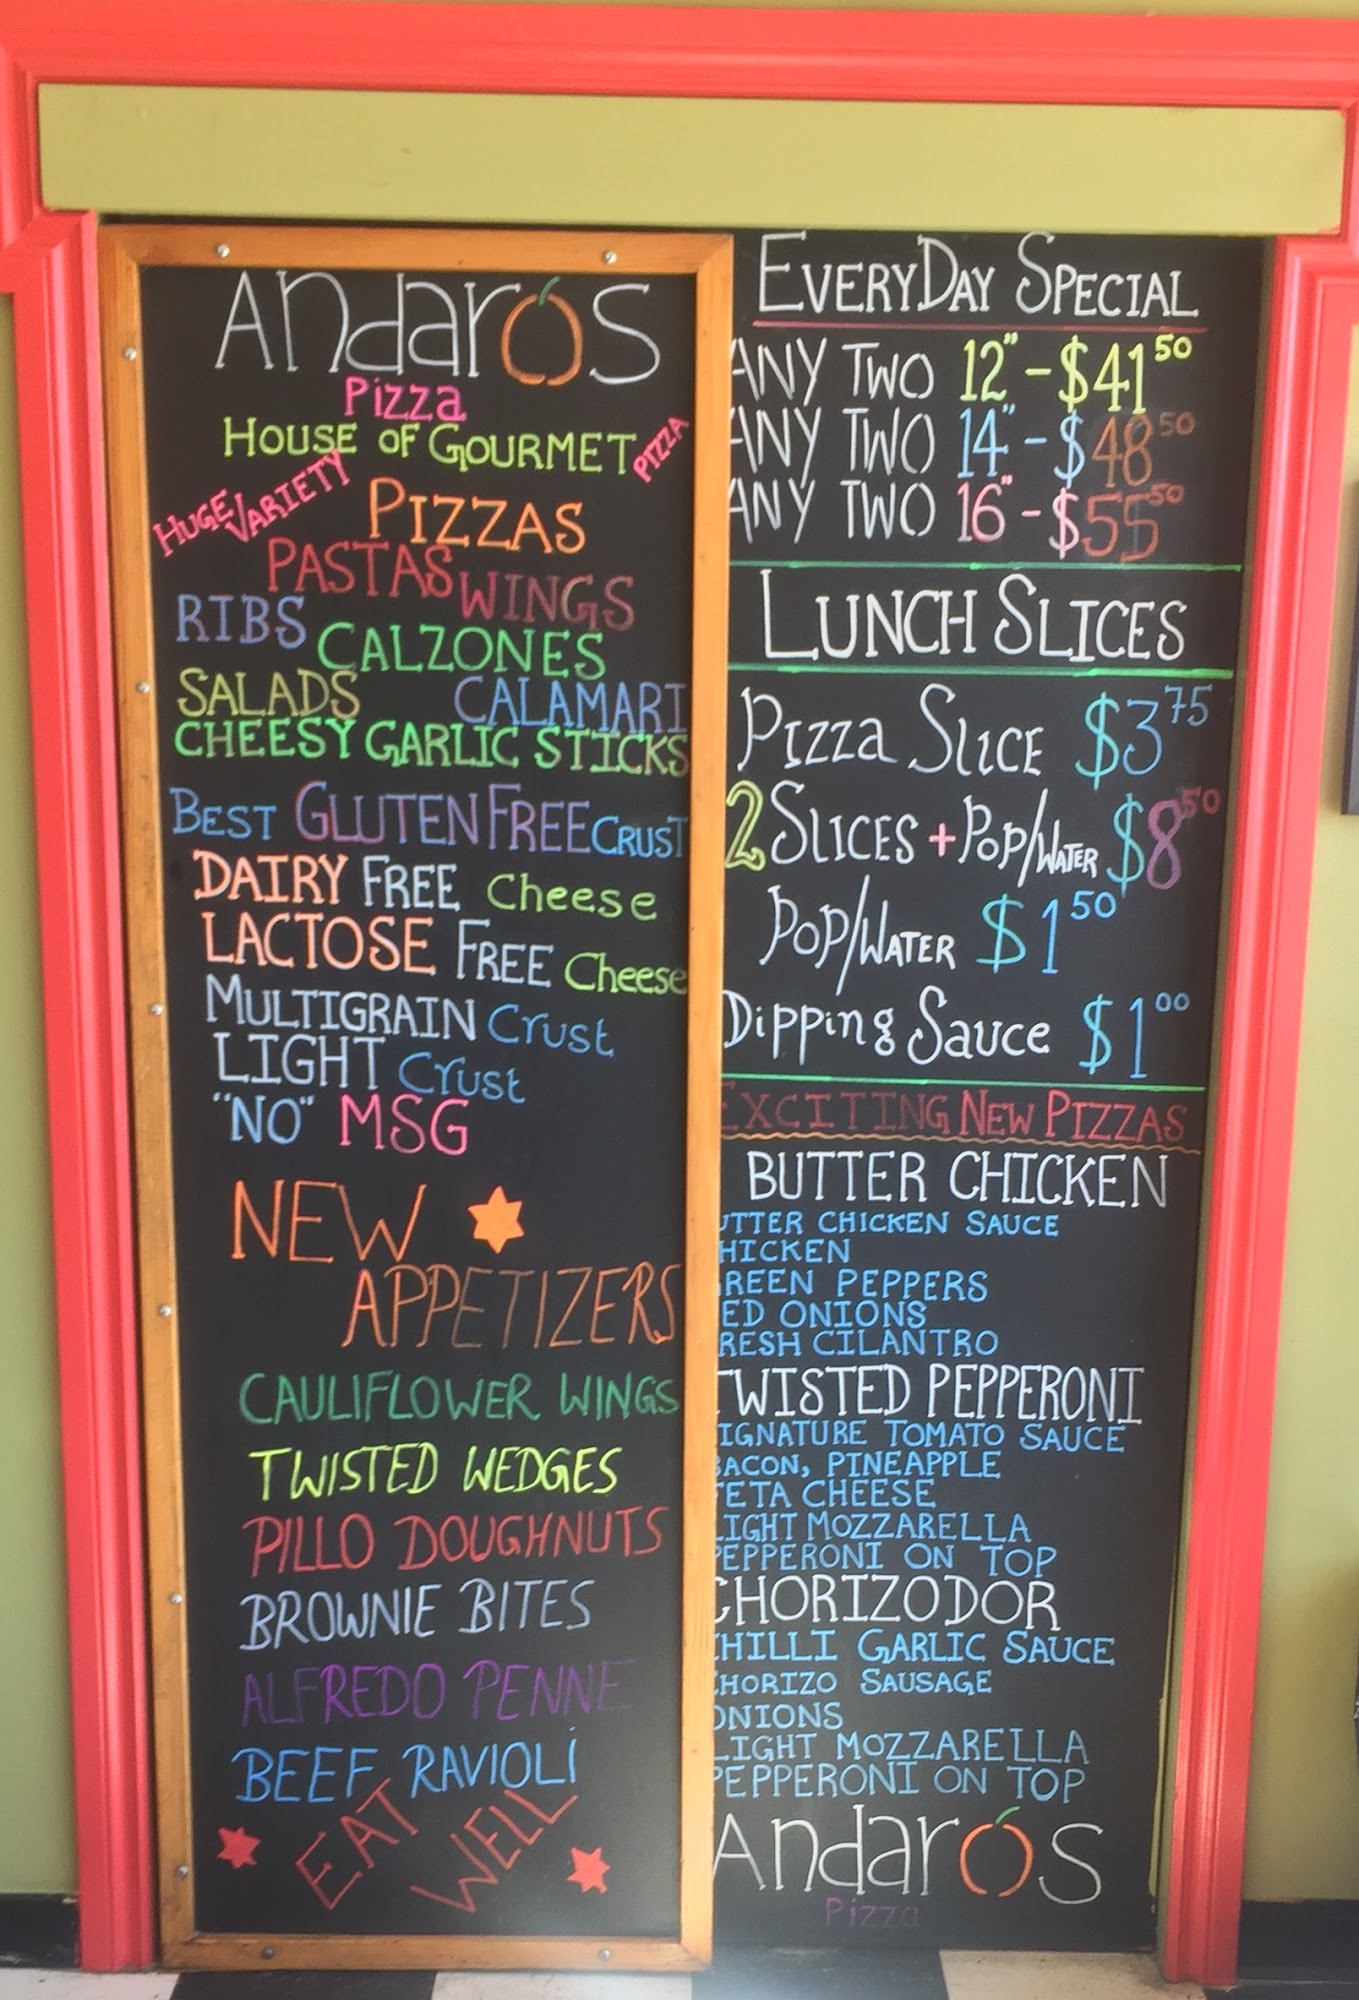 Andaros
Pizza
HOUSE OF GOURMET PIZZA
HUGE VARIETY
PIZZAS
PASTAS WINGS
RIBS CALZONES
SALADS CALAMARI
CHEESY GARLIC STICKS
BEST GLUTEN FREE CRUST
DAIRY FREE Cheese
LACTOSE FREE Cheese
MULTIGRAIN Crust
LIGHT Crust
"NO" MSG
NEW
APPETIZERS
CAULIFLOWER WINGS
TWISTED WEDGES
PILLO DOUGHNUTS
BROWNIE BITES
ALFREDO PENNE
BEEF RAVIOLi
EAT WELL
EVERYDAY SPECIAL
ANY TWO 12" - $41 50
ANY TWO 14" - $48 50
ANY TWO 16" - $55 50
LUNCH SLICES
Pizza Slice $3 75
2 SLICES + POP/WATER $8 50
POP/WATER $1 50
Dipping Sauce $1 00
EXCITING NEW PIZZAS
BUTTER CHICKEN
UTTER CHICKEN SAUCE
HICKEN
REEN PEPPERS
ED ONIONS
RESH CILANTRO
TWISTED PEPPERONI
IGNATURE TOMATO SAUCE
BACON, PINEAPPLE
FETA CHEESE
LIGHT MOZZARELLA
PEPPERONI ON TOP
CHORIZODOR
CHILLI GARLIC SAUCE
CHORIZO SAUSAGE
ONIONS
LIGHT MOZZARELLA
PEPPERONI ON TOP
Andaros
Pizza